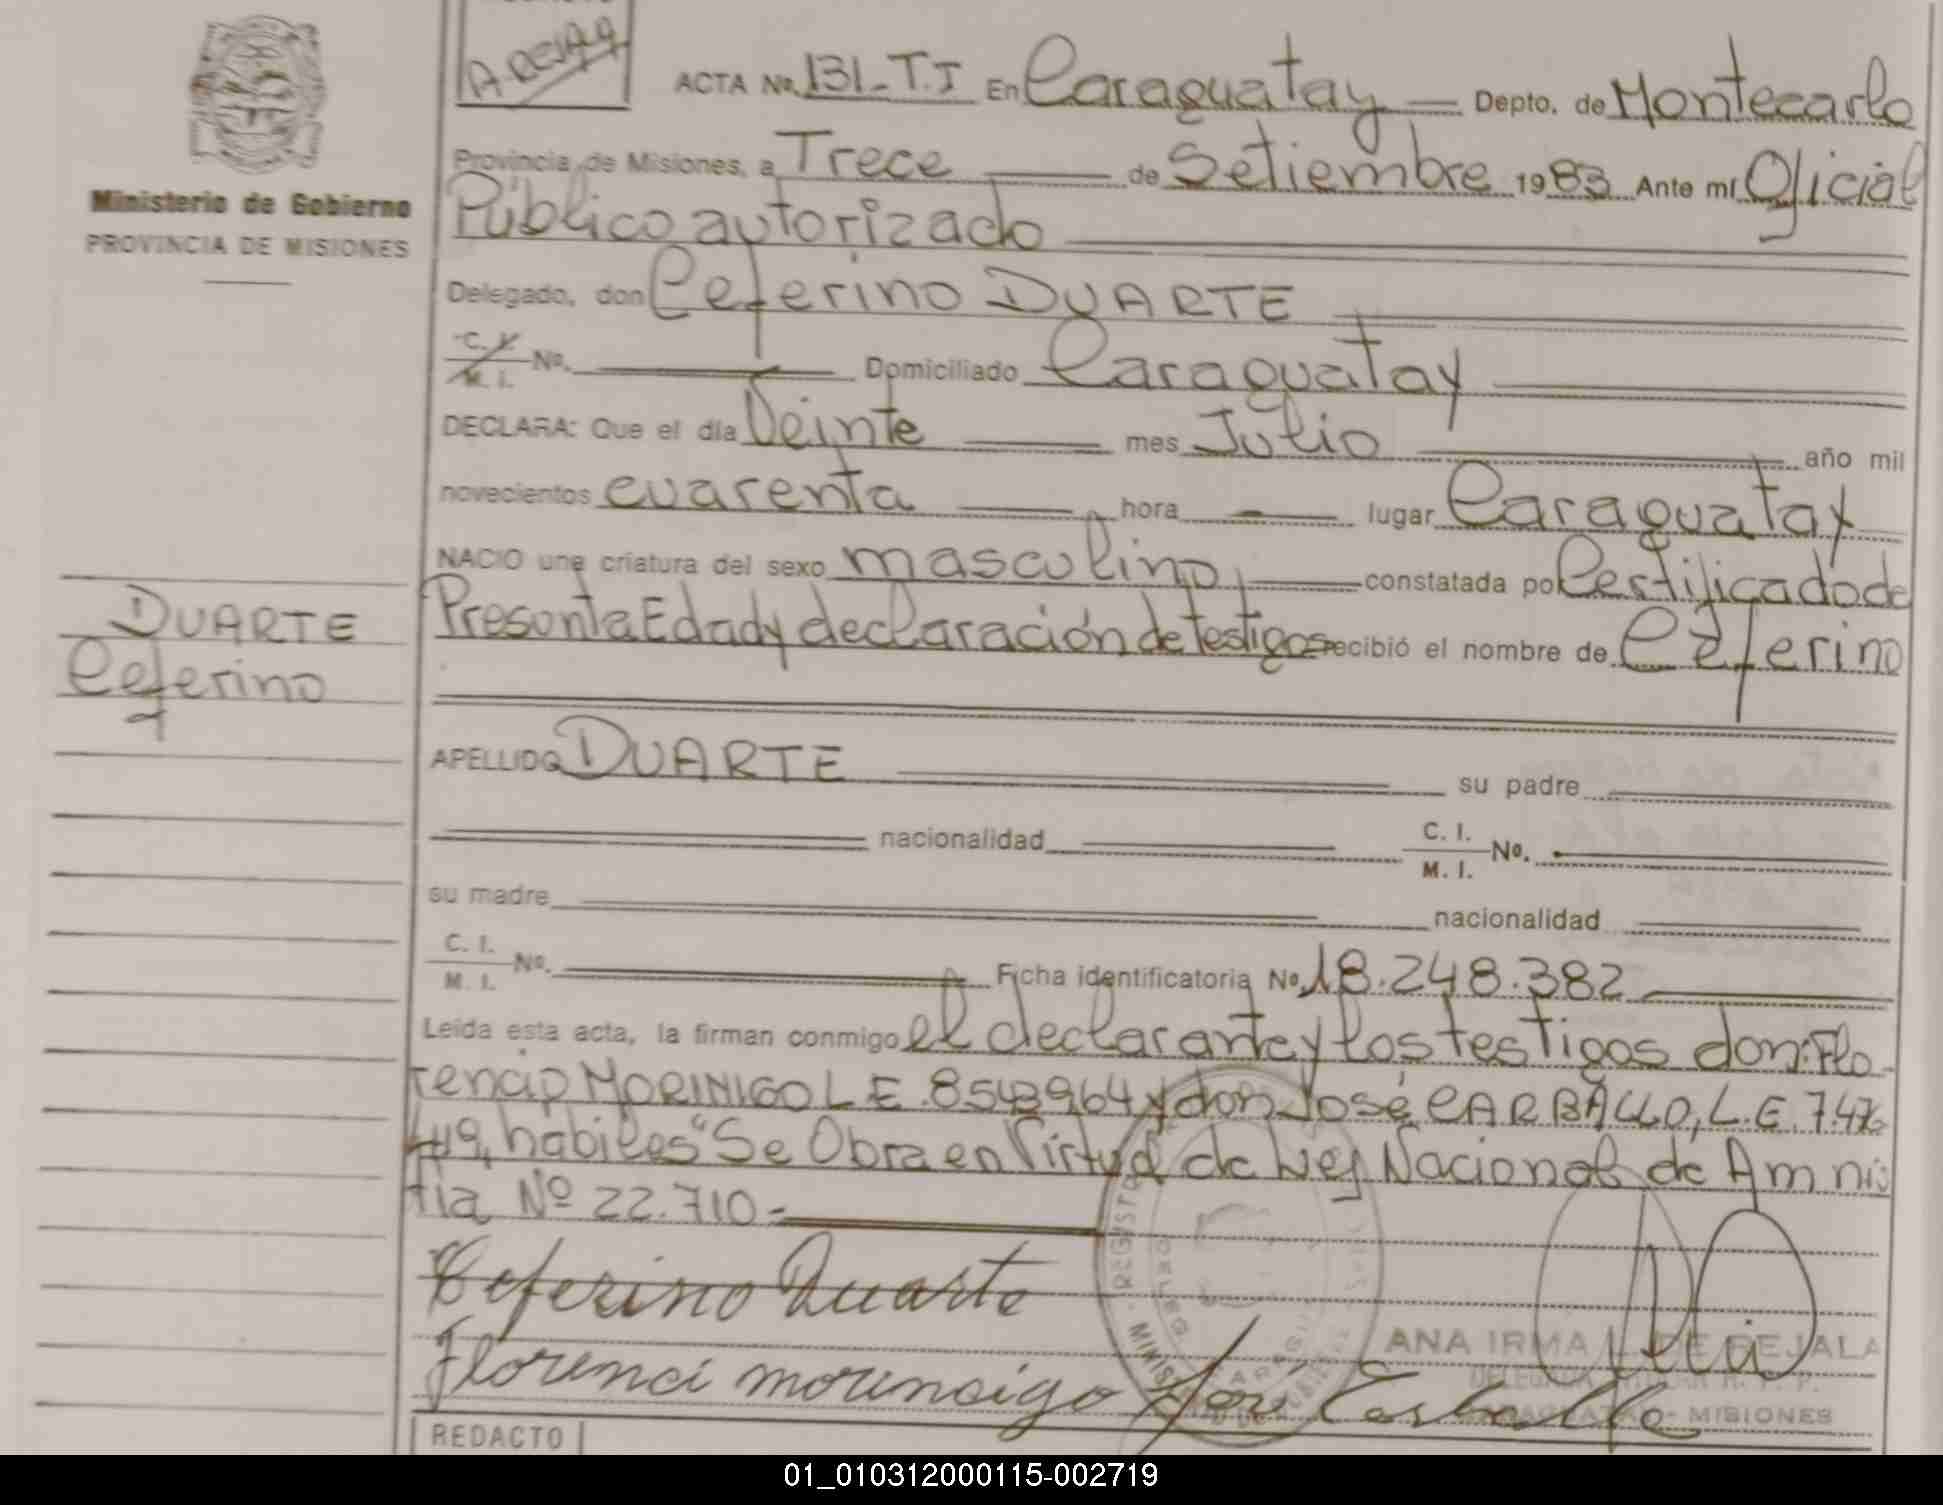 A. REJALA
ACTA No. 131-T.I En Caraguatay Depto. de Montecarlo
Provincia de Misiones, a Trece de Setiembre 1983 Ante mí Oficial
Público autorizado
Ministerio de Gobierno
PROVINCIA DE MISIONES
Delegado, don Ceferino DUARTE
C. I. / M. I. No. Domiciliado Caraguatay
DECLARA: Que el día Veinte mes Julio año mil
novecientos cuarenta hora lugar Caraguatay
NACIO una criatura del sexo masculino, constatada po Certificado de
Presonta Edad y declaración de testigos recibió el nombre de Ceferino
DUARTE
Ceferino
APELLIDO DUARTE su padre
nacionalidad C. I. / M. I. No.
su madre nacionalidad
C. I. / M. I. No. Ficha identificatoria No. 18.248.382
Leída esta acta, la firman conmigo el declarante y los testigos don: Flo-
rencio MORINIGO L.E. 8543964 y don José CARBALLO, L.E. 7.476
449, habiles "Se Obra en Virtud de Ley Nacional de Amnis
tia Nº 22.710-
Ceferino Duarte
Florenci morinsigo José Carballo
ANA IRMA L. DE REJALA
DELEGADA TITULAR R. P. P.
CARAGUATAY - MISIONES
REDACTO
01_010312000115-002719